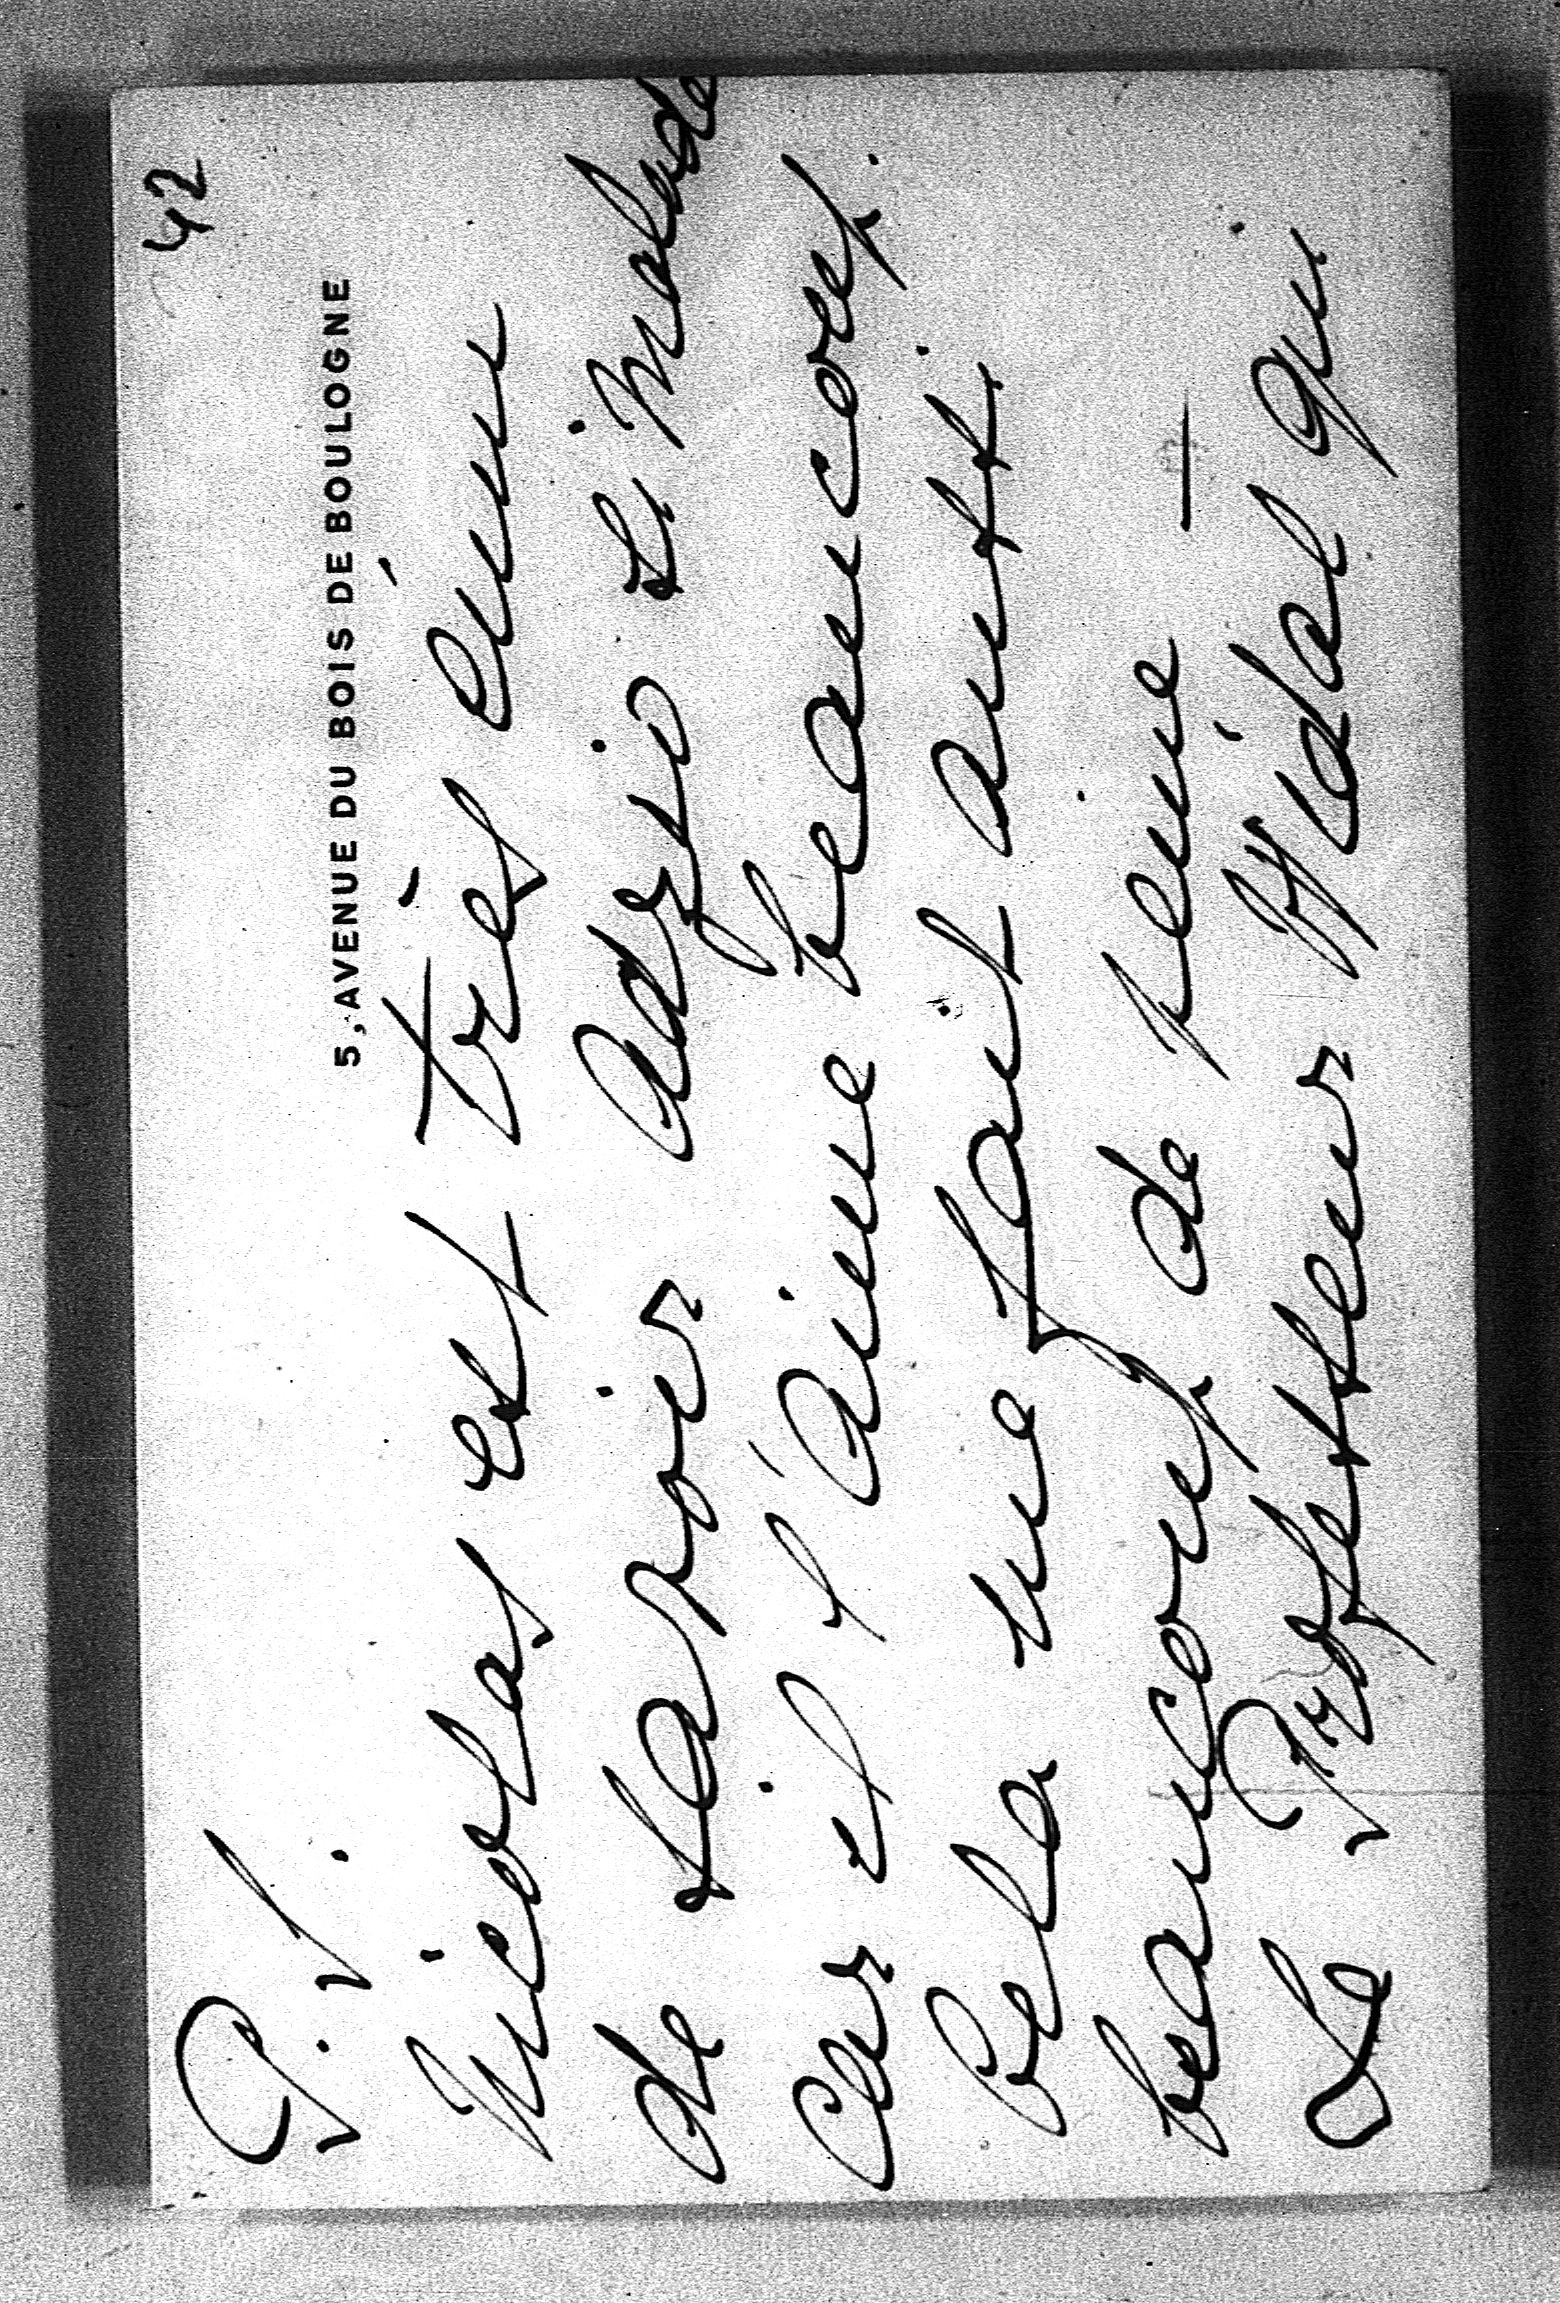 42
5, AVENUE DU BOIS DE BOULOGNE
P. S.
Nicolas est très ému
de savoir Adrio si malade
car il l'aime beaucoup.
Cela me fait aussi
beaucoup de peine —
Le Professeur Vidal qui